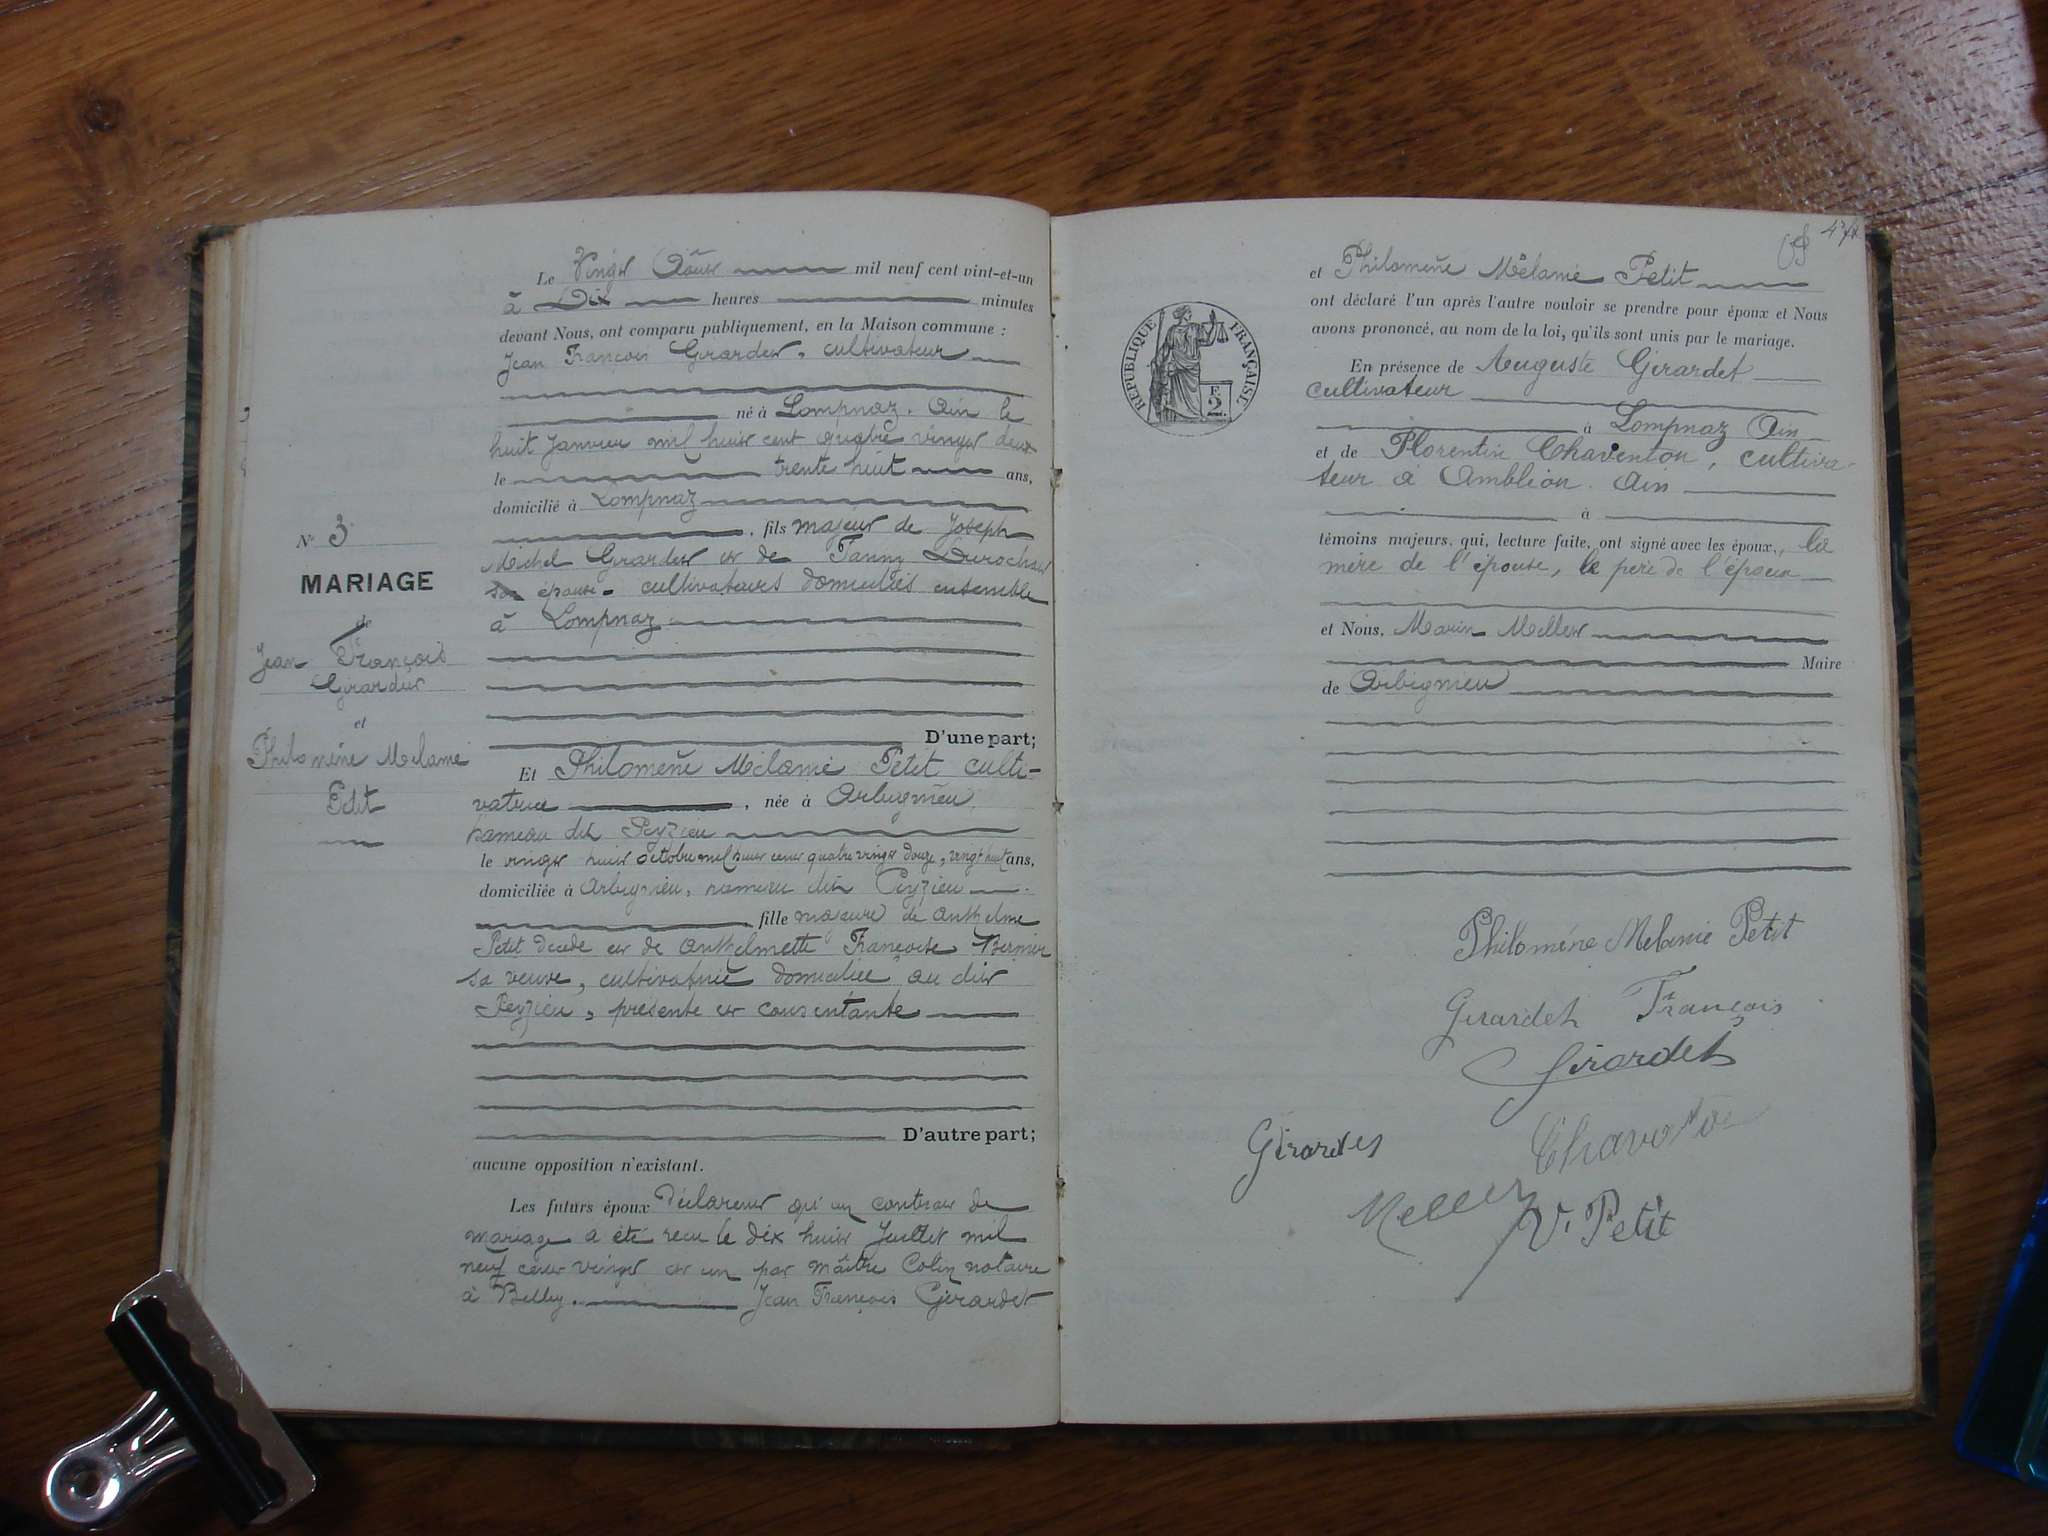 Le Vingt Août mil neuf cent vint-et-un
à Dix heures minutes
devant Nous, ont comparu publiquement, en la Maison commune :
Jean François Girardet, cultivateur
né à Lompnaz. Ain le
huit Janvier mil huit cent quatre vingt deux
le trente huit ans,
domicilié à Lompnaz
, fils majeur de Joseph
Michel Girardet et de Fanny
son épouse. cultivateurs domiciliés ensemble
à Lompnaz
D'une part;
Et Philomène Mélanie Petit culti-
vatrice , née à Arbignieu,
hameau dit Peyzieu
le vingt huit octobre mil huit cent quatre vingt douze, vingt huit ans,
domiciliée à Arbignieu, hameau dit Peyzieu
fille majeure de Anthelme
Petit décédé et de Anthelmette Françoise Bernier
sa veuve, cultivatrice domiciliée au dit
Peyzieu, présente et consentante
D'autre part;
aucune opposition n'existant.
Les futurs époux déclarent qu'un contrat de
mariage a été reçu le dix huit Juillet mil
neuf cent vingt et un par maître Colin notaire
à Belley. Jean François Girardet
N° 3
MARIAGE
de
Jean François
Girardet
et
Philomène Mélanie
Petit
et Philomène Mélanie Petit
ont déclaré l'un après l'autre vouloir se prendre pour époux et Nous
avons prononcé, au nom de la loi, qu'ils sont unis par le mariage.
En présence de Auguste Girardet
cultivateur
à Lompnaz Ain
et de Florentin Chaventon, cultiva-
teur à Amblion. Ain
à
témoins majeurs, qui, lecture faite, ont signé avec les époux, la
mère de l'épouse, le père de l'époux
et Nous, Marin Mellet
Maire
de Arbignieu
RÉPUBLIQUE FRANÇAISE
F.
2
Philomène Melanie Petit
Girardet François
Girardet
Girardet
Mellet
V. Petit